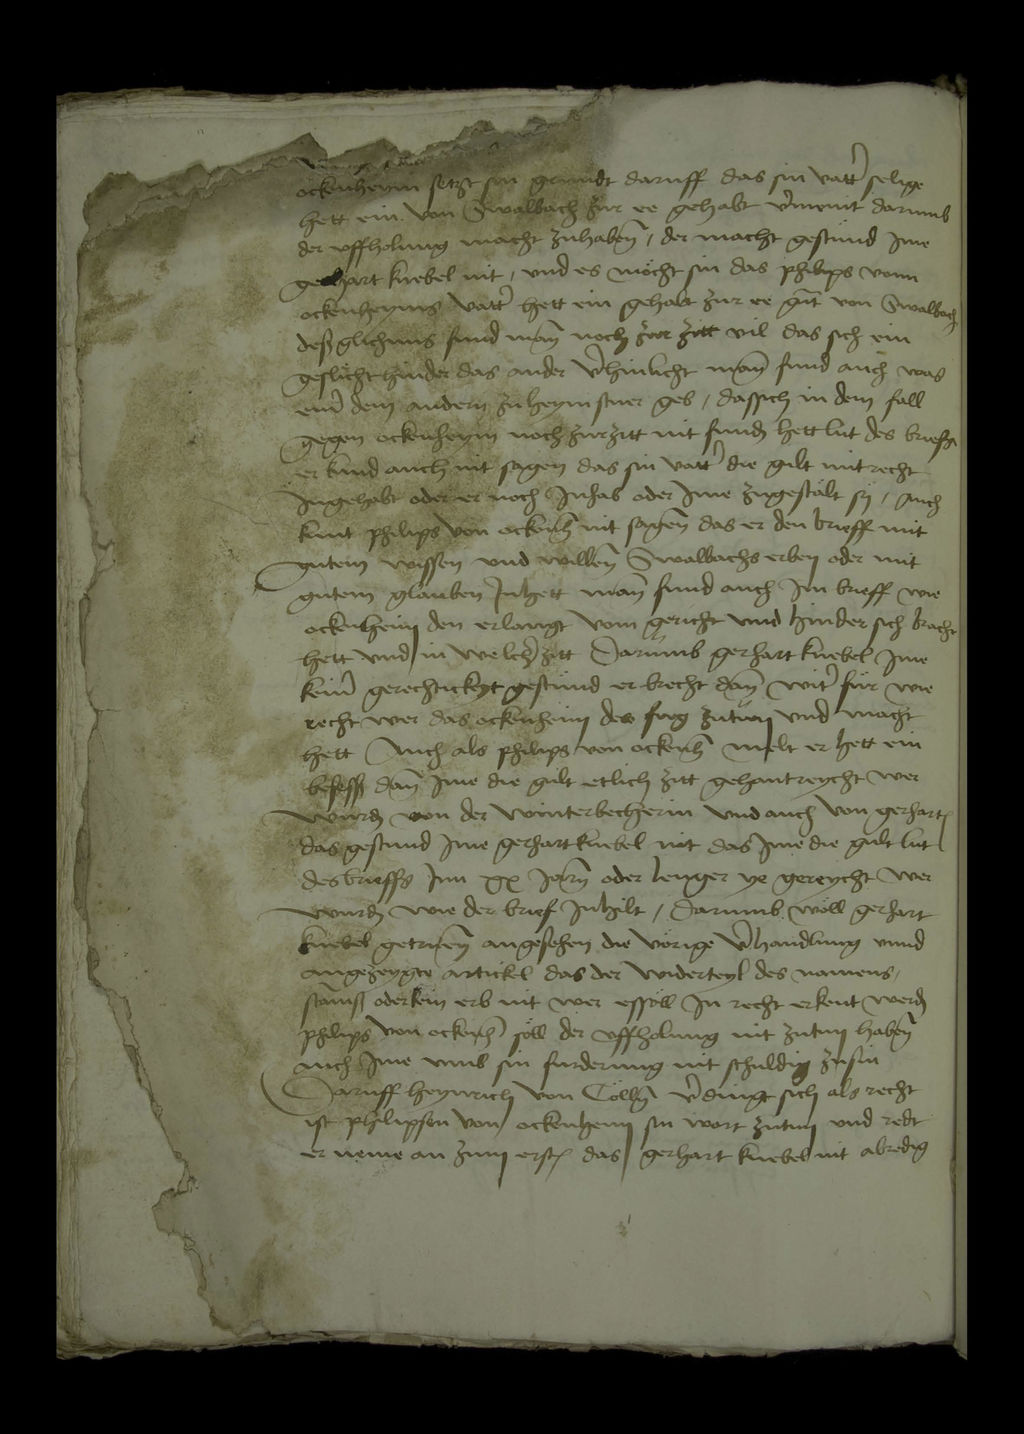 ockenheym setzt sin grundt daruff das sin vatter selige
hett ein von Swalbach zur ee gehabt vermeint darumb
der uffholung macht zuhaben, der macht gestund Ime
gerhart knebel nit, und es möcht sin das philips vonn
ockenheyms vatter hett ein gehabt zur ee gnt von Swalbach
deßglichnus fund man noch zur zitt vil das sich ein
geslicht hinder das ander verhinlicht man fund auch was
einer dem andern zuheymstuer geb, das sich in dem fall
gegen ockenheym noch zurzitt nit fund hett lut des brieffs
er kund auch nit sagen das sin vatter die gilt mit recht
Ingehabt oder er noch Inhab oder Ime zugestalt sy, Auch
kunt philips von ockenh nit sagen das er den brieff mit
gutem wissen und willen Swalbachs erben oder mit
gutem glauben Inhett man fund auch Im brieff wie
ockenheim den erlangt vom gericht und hinder sich bracht
hett und in welch zitt Darumb gerhart knebel Ime
keiner gerechtickeyt gestund er brecht dann witer fur wie
recht wer das ockenheim des fug zutun und macht
hett Auch als philips von ockenh melt er hett ein
besesß dan Ime die gult etlich zitt gehantreycht wer
wurd von der winterbecherin und auch von gerhart
das gestund Ime gerhart knebel nit das Ime die gult lut
des brieffs Inn xx Jarn oder lenger ye gereycht wer
wurd wie der brief Inhilt, Darumb wöll gerhart
knebel getruen angesehen die vorige verhandlung unnd
angezeygte artickel das der widerteyl des namens,
stamß oder kein erb nit wer es söll In recht erkent werd
philips von ockenh söll der uffholung nit zutun haben
auch Ime umb sin furderung nit schuldig zusin
Daruff heynrich von Cölln verdingt sich als recht
ist philipsen von ockenheim sin wort zutun und redt
er neme an zum erst das gerhart knebel nit abredig